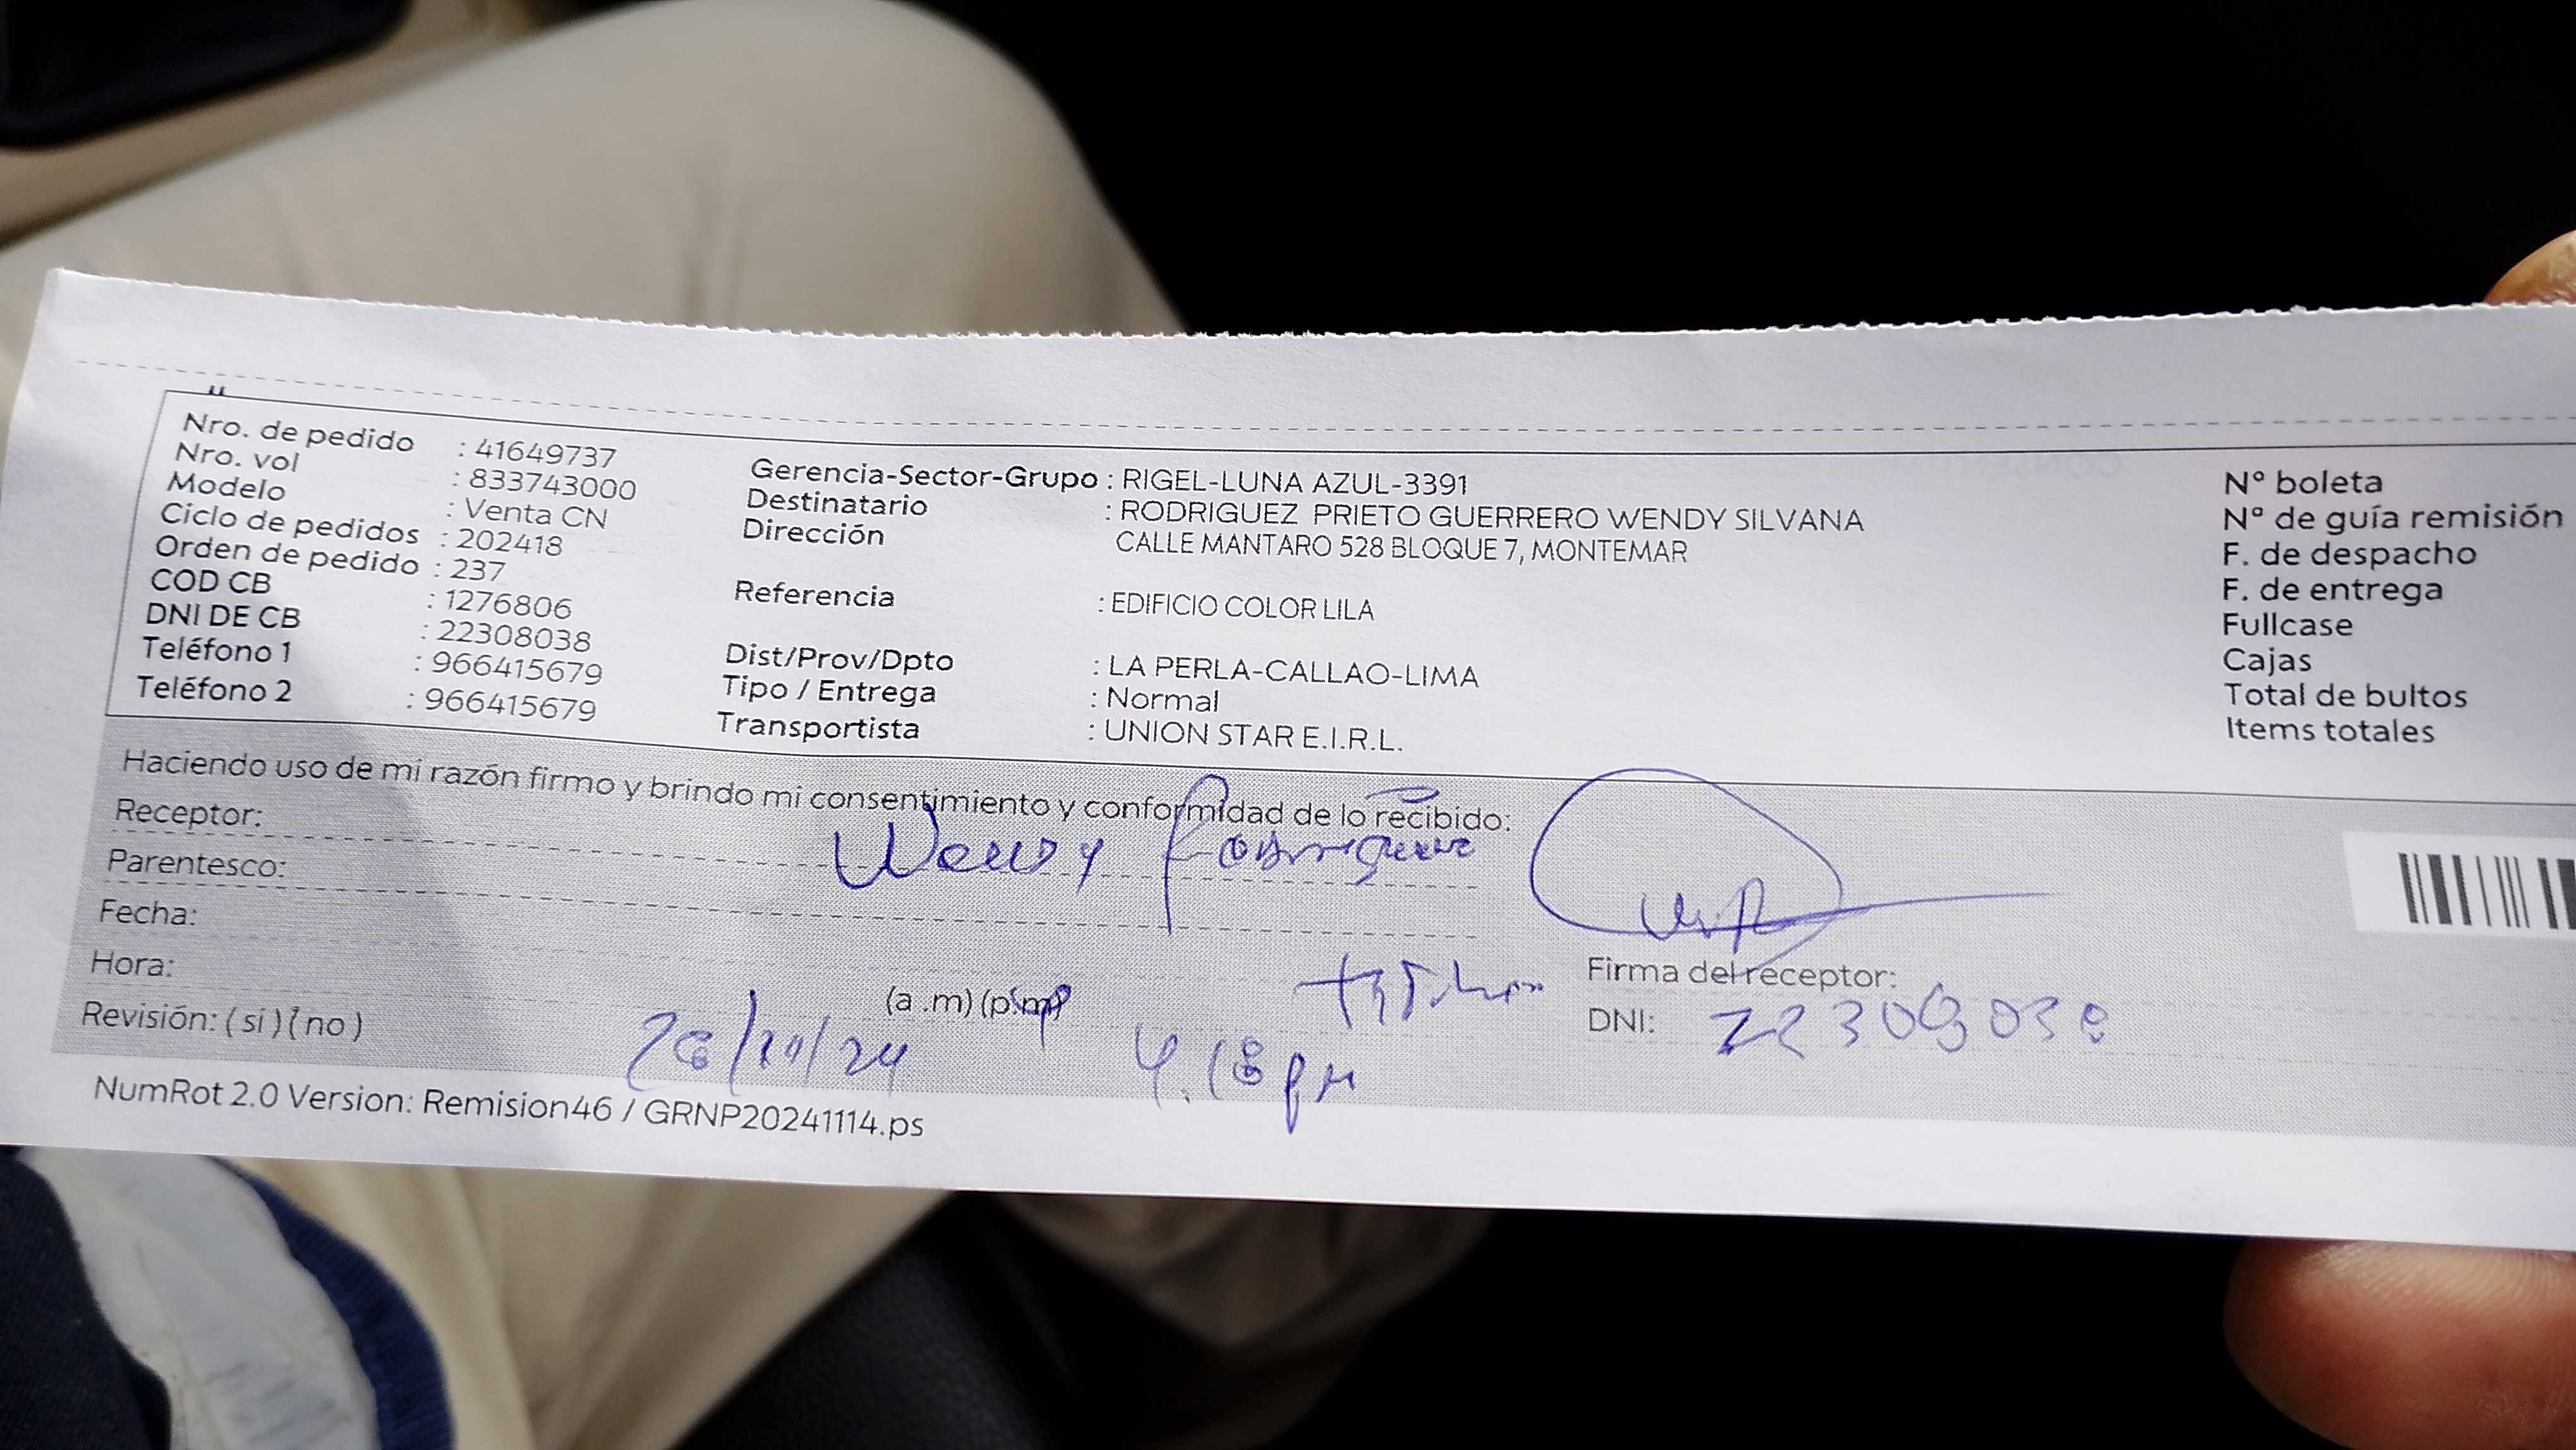 Nro. de pedido : 41649737
Nro. vol : 833743000
Modelo : Venta CN
Ciclo de pedidos : 202418
Orden de pedido : 237
COD CB : 1276806
DNI DE CB : 22308038
Teléfono 1 : 966415679
Teléfono 2 : 966415679
Gerencia-Sector-Grupo : RIGEL-LUNA AZUL-3391
Destinatario : RODRIGUEZ PRIETO GUERRERO WENDY SILVANA
Dirección CALLE MANTARO 528 BLOQUE 7, MONTEMAR
Referencia : EDIFICIO COLOR LILA
Dist/Prov/Dpto : LA PERLA-CALLAO-LIMA
Tipo / Entrega : Normal
Transportista : UNION STAR E.I.R.L.
N° boleta
N° de guía remisión
F. de despacho
F. de entrega
Fullcase
Cajas
Total de bultos
Items totales
Haciendo uso de mi razón firmo y brindo mi consentimiento y conformidad de lo recibido:
Receptor: Wendy Rodriguez
Parentesco:
Fecha:
Hora: (a.m) (p.m)
Revisión: ( si ) ( no )
4.18 pm
Firma del receptor:
DNI: 22308038
NumRot 2.0 Version: Remision46 / GRNP20241114.ps